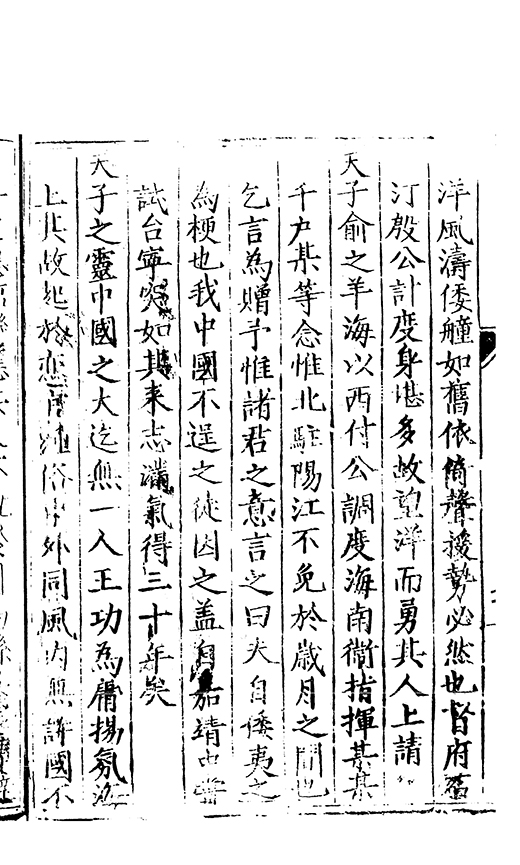 洋風濤倭艟如舊依倚聲援勢必然也督府
汀殷公計度身堪多故望洋而勇其人上請
天子俞之羊海以西付公調度海南衞指揮某某
千户某等念惟北駐陽江不免於歲月之間也
乞言為贈予惟諸君之意言之曰夫自倭夷之
為梗也我中國不逞之徒因之盖自嘉靖中嘗
試台寧如其来志滿氣得三十年矣
天子之靈中國之大迄無一人王功為膺揚氛海
上其故起於俗中外同風内無詩國不